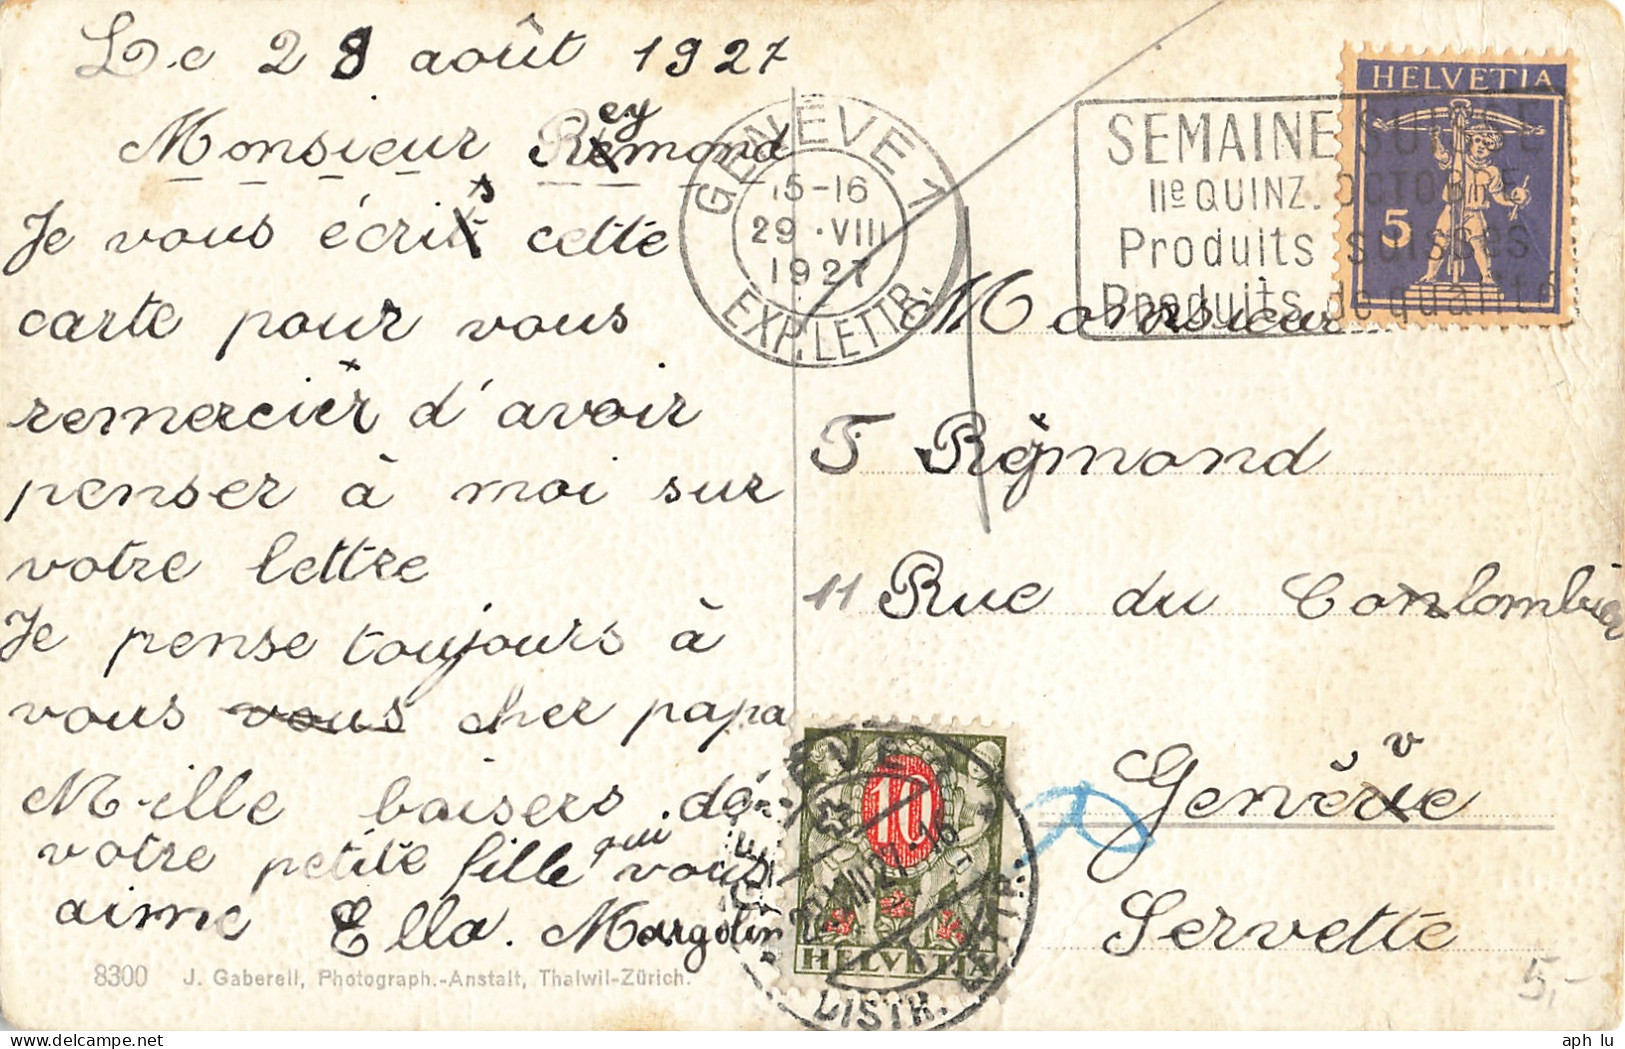 Le 28 août 1927
Monsieur Reymond
Je vous écris cette
carte pour vous
remercier d'avoir
penser à moi sur
votre lettre
Je pense toujours à
vous vous cher papa
Mille baisers de
votre petite fille qui vous
aime Ella. Margolin
8300 J. Gaberell, Photograph.-Anstalt, Thalwil-Zürich.
GENÈVE 1
15-16
29·VIII
1927
EXP. LETTR.
SEMAINE SUISSE
IIe QUINZ. OCTOBRE
Produits suisses
Produits de qualité
HELVETIA
5
Monsieur
F Reymond
11 Rue du Colombier
Genève
Servette
10
HELVETIA
LISTR.
5,-
aph lu